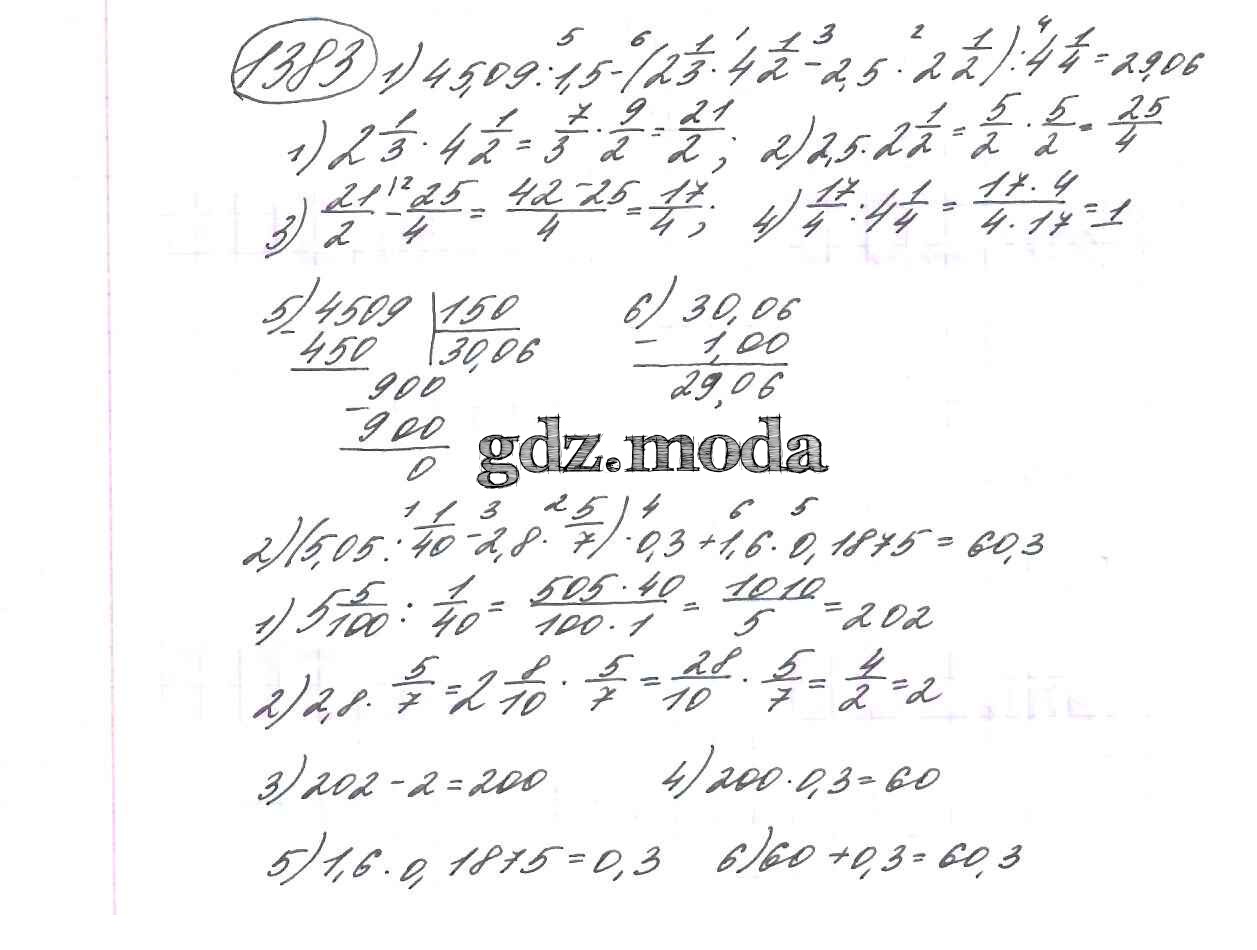 1383 1) 45,09 : 1,5 - (2 1/3 · 4 1/2 - 2,5 · 2 1/2) : 4 1/4 = 29,06
5 6 1 3 2 4
1) 2 1/3 · 4 1/2 = 7/3 · 9/2 = 21/2; 2) 2,5 · 2 1/2 = 5/2 · 5/2 = 25/4
3) 21/2 \2 - 25/4 = (42 - 25)/4 = 17/4; 4) 17/4 : 4 1/4 = (17 · 4)/(4 · 17) = 1
5) 4509 | 150 6) 30,06
- 450 30,06 - 1,00
900 29,06
- 900
0
gdz.moda
1 3 2 4 6 5
2) (5,05 : 1/40 - 2,8 · 5/7) · 0,3 + 1,6 · 0,1875 = 60,3
1) 5 5/100 : 1/40 = (505 · 40)/(100 · 1) = 1010/5 = 202
2) 2,8 · 5/7 = 2 8/10 · 5/7 = 28/10 · 5/7 = 4/2 = 2
3) 202 - 2 = 200 4) 200 · 0,3 = 60
5) 1,6 · 0,1875 = 0,3 6) 60 + 0,3 = 60,3